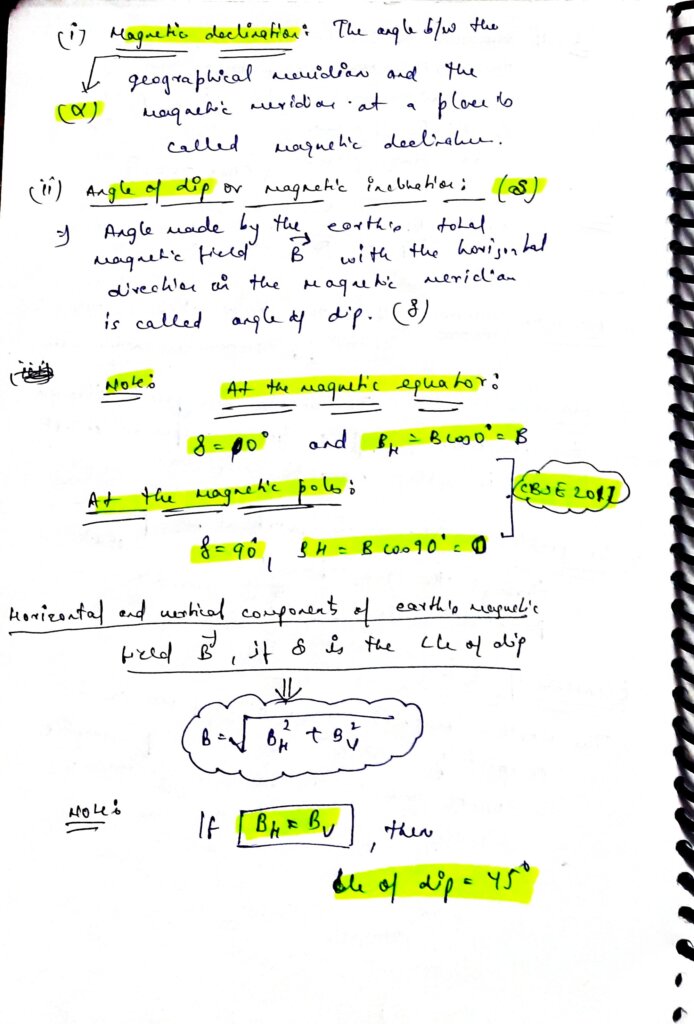 (i) Magnetic declination: The angle b/w the
geographical meridian and the
(α) magnetic meridian at a place is
called magnetic declination.
(ii) Angle of dip or magnetic inclination: (δ)
⇒ Angle made by the earth's total
magnetic field B⃗ with the horizontal
direction in the magnetic meridian
is called angle of dip. (δ)
Note: At the magnetic equator:
δ = 0° and B_H = B cos 0° = B
At the magnetic poles: CBSE 2011
δ = 90°, BH = B cos 90° = 0
Horizontal and vertical components of earth's magnetic
field B⃗, if δ is the ∠le of dip
⇓
B = √(B_H² + B_V²)
Note: If B_H = B_V, then
∠le of dip = 45°